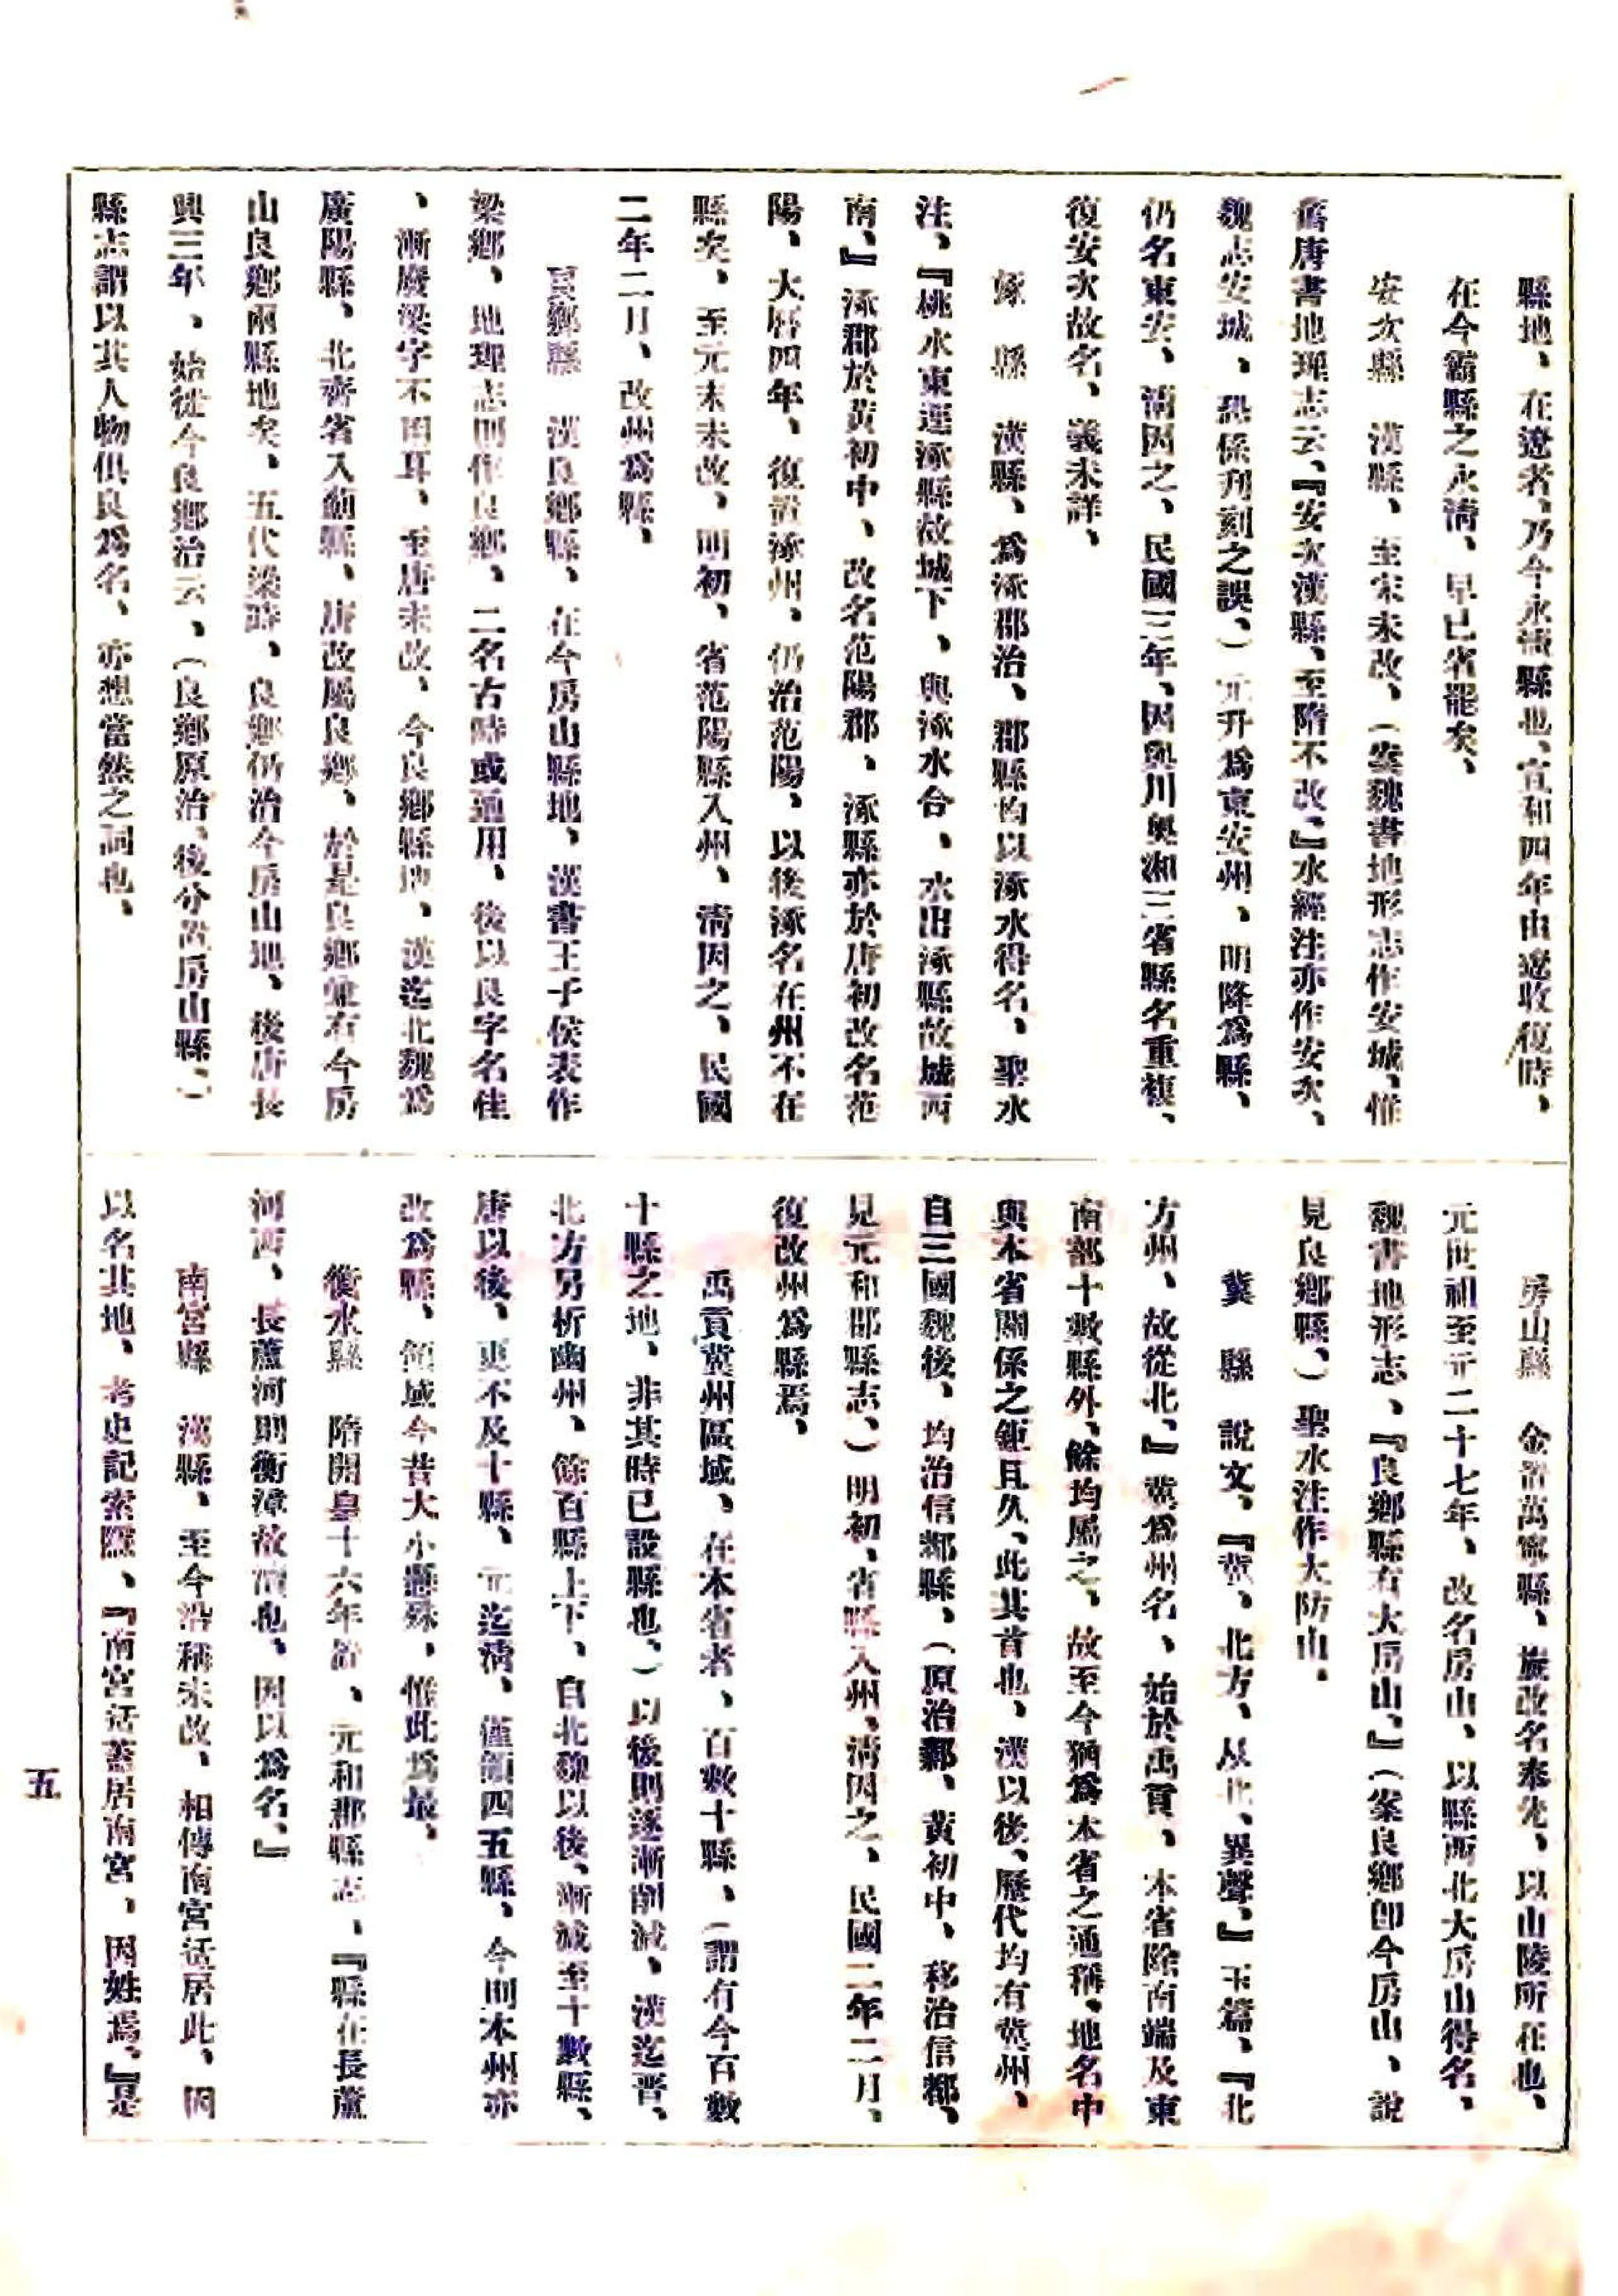 縣地、在遼者、乃今永淸縣也、宣和四年由遼收復時、
在今霸縣之永淸、早已省罷矣、
安次縣　漢縣、至宋未改、（案魏書地形志作安城、惟
舊唐書地理志云、『安次漢縣、至隋不改、』水經注亦作安次、
魏志安城、恐係刋刻之誤、）元升爲東安州、明降爲縣、
仍名東安、淸因之、民國三年、因與川奧湘三省縣名重複、
復安次故名、義未詳、
涿　縣　漢縣、爲涿郡治、郡縣均以涿水得名、聖水
注、『桃水東逕涿縣故城下、與涿水合、水出涿縣故城西
南、』涿郡於黃初中、改名范陽郡、涿縣亦於唐初改名范
陽、大曆四年、復置涿州、仍治范陽、以後涿名在州不在
縣矣、至元末未改、明初、省范陽縣入州、淸因之、民國
二年二月、改州爲縣、
良鄉縣　漢良鄉縣、在今房山縣地、漢書王子侯表作
梁鄉、地理志則作良鄉、二名古時或通用、後以良字名佳
、漸廢梁字不用耳、至唐未改、今良鄉縣地、漢迄北魏爲
廣陽縣、北齊省入薊縣、唐改屬良鄉、於是良鄉兼有今房
山良鄉兩縣地矣、五代梁時、良鄉仍治今房山地、後唐長
興三年、始徙今良鄉治云、（良鄉原治、後分置房山縣、）
縣志謂以其人物俱良爲名、亦想當然之詞也、
房山縣　金置萬寧縣、旋改名奉先、以山陵所在也、
元世祖至元二十七年、改名房山、以縣西北大房山得名、
魏書地形志、『良鄉縣有大房山、』（案良鄉卽今房山、說
見良鄉縣、）聖水注作大防山、
冀　縣　說文、『冀、北方、从北、異聲、』玉篇、『北
方州、故從北、』冀爲州名、始於禹貢、本省除南端及東
南部十數縣外、餘均屬之、故至今猶爲本省之通稱、地名中
與本省關係之鉅且久、此其首也、漢以後、歷代均有冀州、
自三國魏後、均治信都縣、（原治鄴、黃初中、移治信都、
見元和郡縣志、）明初、省縣入州、淸因之、民國二年二月、
復改州爲縣焉、
禹貢冀州區域、在本省者、百數十縣、（謂有今百數
十縣之地、非其時已設縣也、）以後則逐漸削減、漢迄晋、
北方另析幽州、餘百縣上下、自北魏以後、漸減至十數縣、
唐以後、更不及十縣、元迄淸、僅領四五縣、今則本州亦
改爲縣、領域今昔大小懸殊、惟此爲最、
衡水縣　隋開皇十六年置、元和郡縣志、『縣在長蘆
河西、長蘆河則衡漳故瀆也、因以爲名、』
南宮縣　漢縣、至今沿稱未改、相傳南宮适居此、因
以名其地、考史記索隱、『南宮适蓋居南宮、因姓焉、』是
五